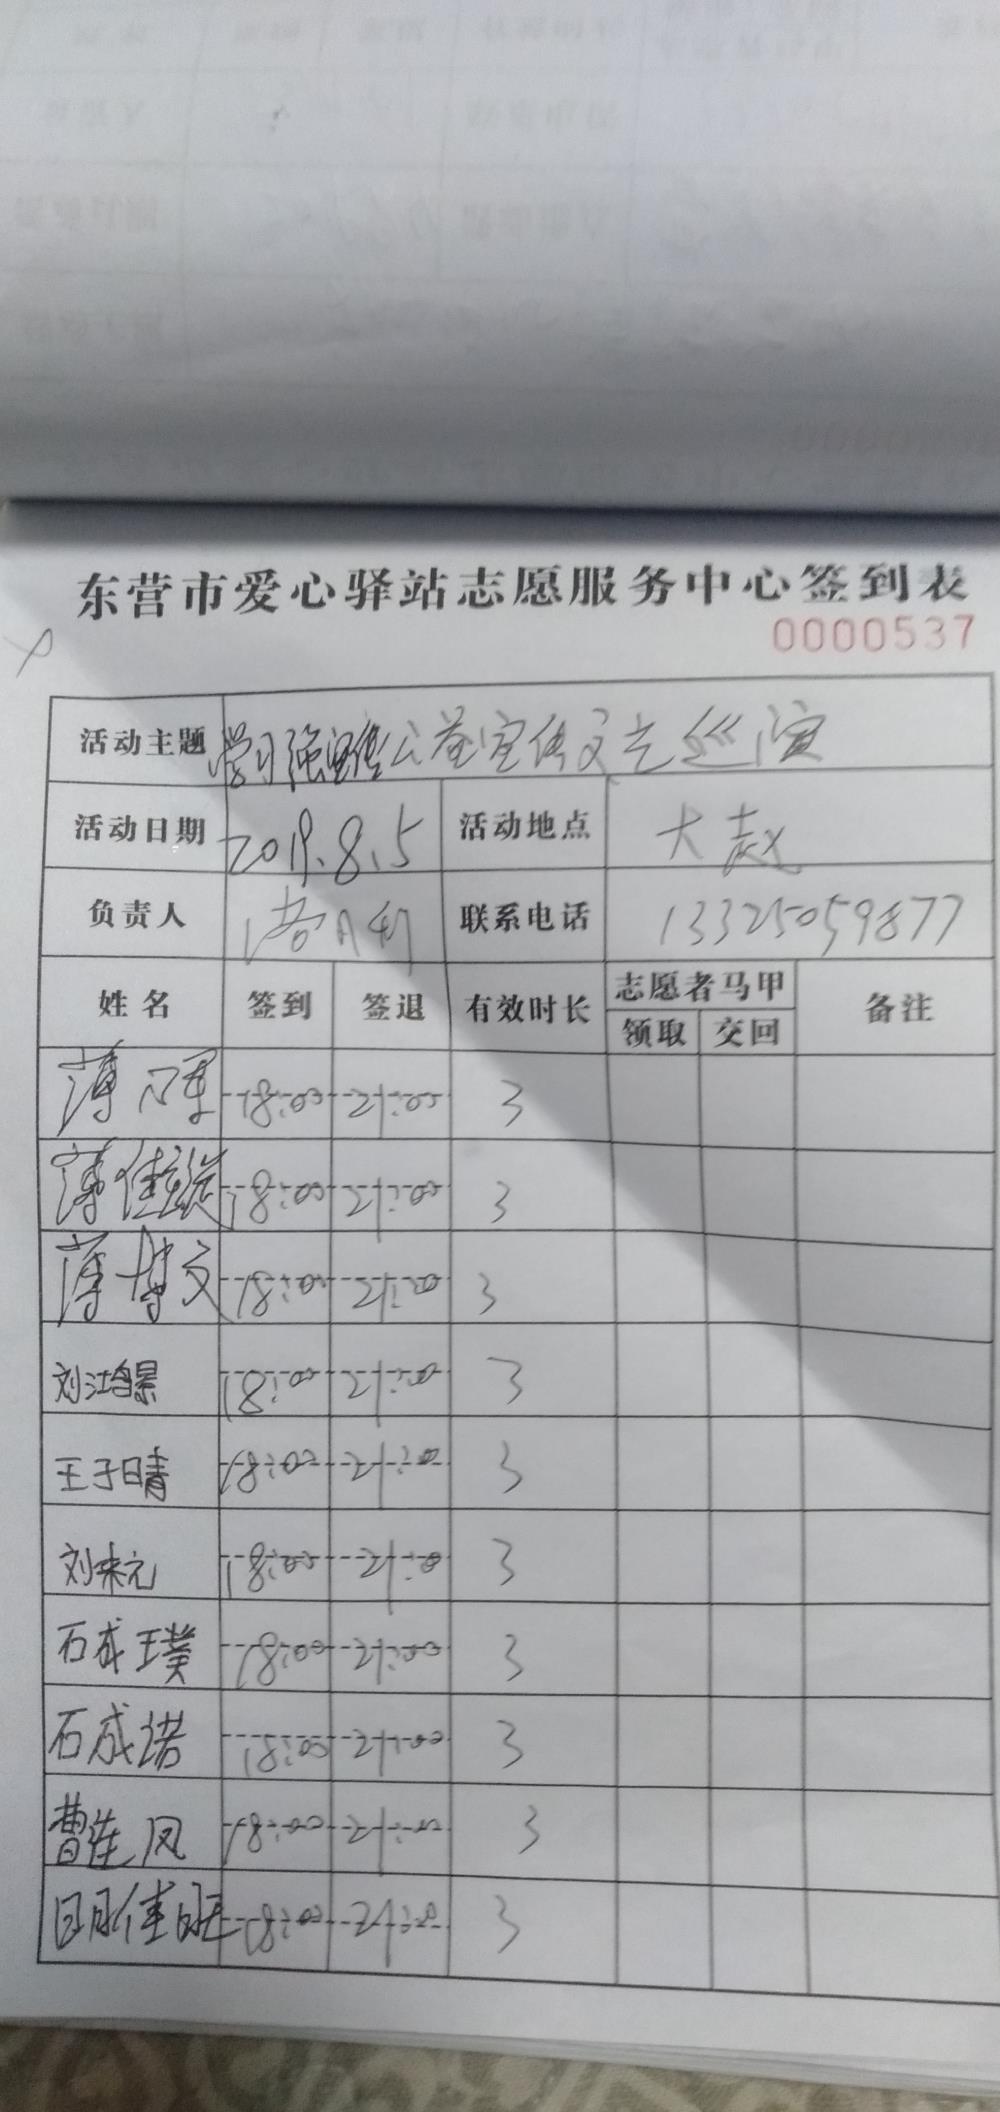 东营市爱心驿站志愿服务中心签到表
0000537
活动主题 学习强国 公益宣传文艺巡演
活动日期 2019.8.5 活动地点 大赵
负责人 联系电话 13325059877
姓名 签到 签退 有效时长 志愿者马甲 备注
领取 交回
薄 军 18:00 21:00 3
薄佳璇 18:00 21:00 3
薄博文 18:00 21:00 3
刘江景 18:00 21:00 3
王子晴 18:00 21:00 3
刘来元 18:00 21:00 3
石成璞 18:00 21:00 3
石成诺 18:00 21:00 3
曹莲凤 18:00 21:00 3
明佳旺 18:00 21:00 3